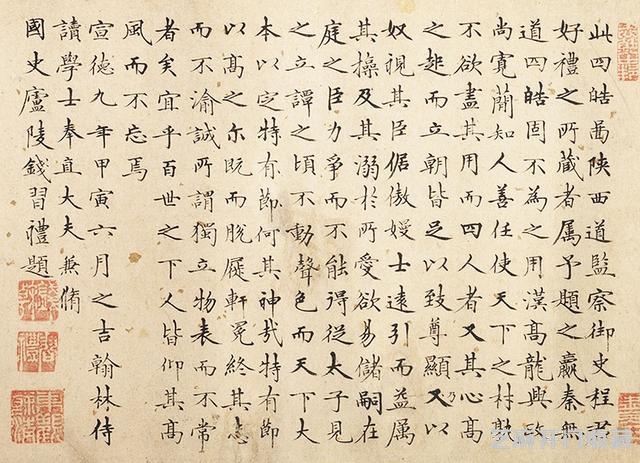 此四皓啚陝西道監察御史程君
好禮之所藏者属予題之嬴秦無
道四皓固不為之用漢髙龍興政
尚寬蕳知人善任使天下之材
不欲盡其用而四人者又其心髙
之趍而立朝皆足以致尊顯又乃以
奴視其臣倨傲嫚士遠引而益属
其操及其溺於所愛欲易儲嗣在
庭之臣力爭而不能得從太子見
之立譚之頃不動聲色而天下大
本以定特有節何其神哉特有節
以髙之尔既而脫屣軒冕終其志
而不渝誠所謂獨立物表而不常
者矣宜乎百世之下人皆仰其髙
風而不忘焉
宣德九年甲寅六月之吉翰林侍
讀學士奉直大夫兼脩
國史廬陵錢習禮題